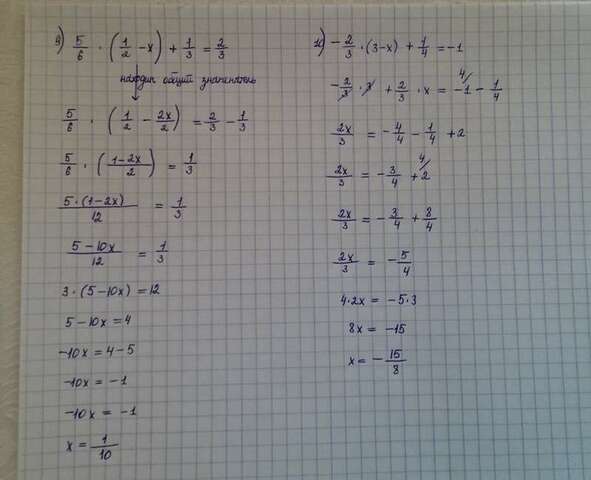 9) 5/6 · (1/2 - x) + 1/3 = 2/3
находим общий знаменатель
5/6 · (1/2 - 2x/2) = 2/3 - 1/3
5/6 · (1-2x/2) = 1/3
5·(1-2x)/12 = 1/3
5-10x/12 = 1/3
3·(5-10x) = 12
5-10x = 4
-10x = 4-5
-10x = -1
-10x = -1
x = 1/10
10) -2/3 · (3-x) + 1/4 = -1
-2/3 · 3 + 2/3 · x = 4/ -1 - 1/4
2x/3 = -4/4 - 1/4 + 2
2x/3 = -3/4 + 4/ 2
2x/3 = -3/4 + 8/4
2x/3 = -5/4
4·2x = -5·3
8x = -15
x = -15/8